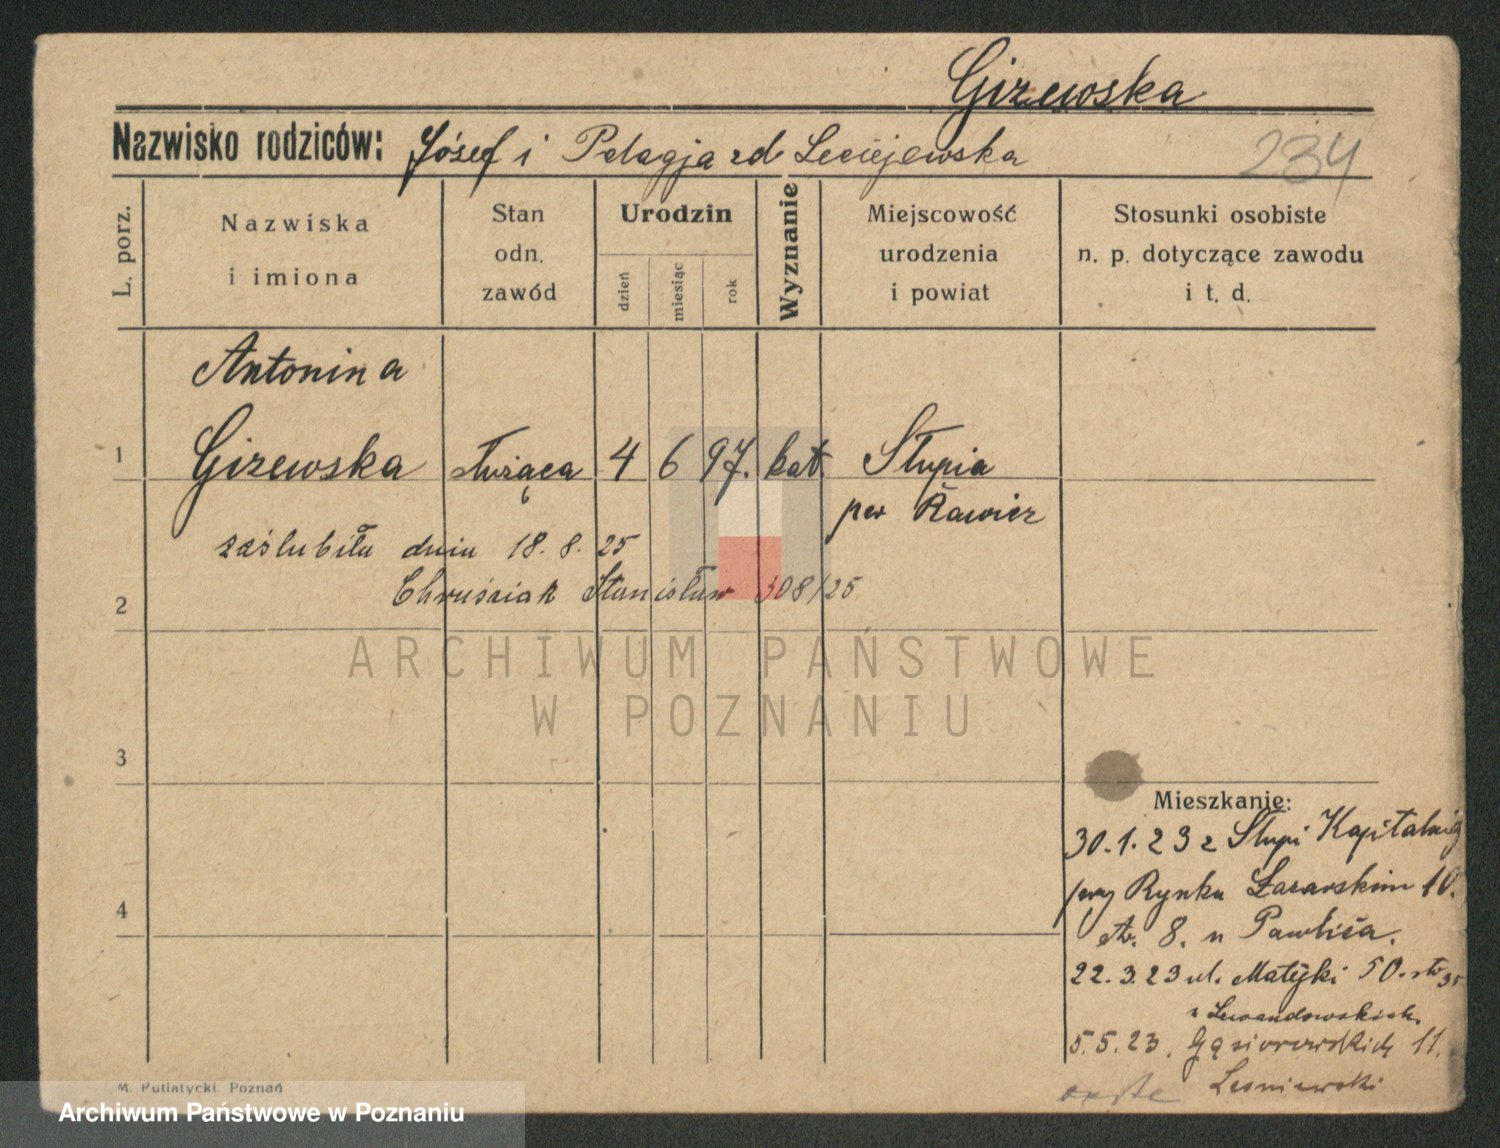 Gizewska
Nazwisko rodziców: Józef i Pelagja zd Leciejewska
234
L. porz.
Nazwiska
i imiona
Stan
odn.
zawód
Urodzin
dzień
miesiąc
rok
Wyznanie
Miejscowość
urodzenia
i powiat
Stosunki osobiste
n. p. dotyczące zawodu
i t. d.
Antonina
1 Gizewska służąca 4 6 97. kat. Słupia
pow Rawicz
zaślubiła dnia 18. 8. 25
2 Chruściak Stanisław 308/25
ARCHIWUM PAŃSTWOWE
W POZNANIU
3
Mieszkanie:
30.1.23 z Słupi
Rynku Łazarskim 10.
4
8. u Pawlića.
22.3.23 ul. Matejki 50.
u Lewandowskich.
5.5.23. Gąsiorowskich 11.
Leśniewski
M. Putiatycki, Poznań
Archiwum Państwowe w Poznaniu